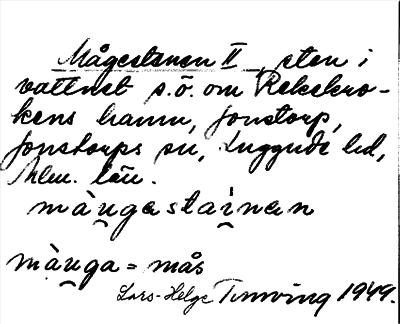 Mågestenen II, sten i
vattnet s.ö. om Rekekro-
kens hamn, Jonstorp,
Jonstorps sn, Luggude hd,
Mlm. län.
màu̯gastai̯nən
màu̯ga = mås
Lars-Helge Timving 1949.